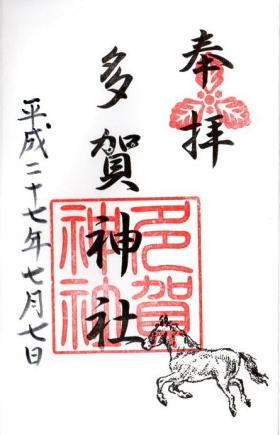 奉拝
多賀神社
多賀神社
平成二十七年七月七日